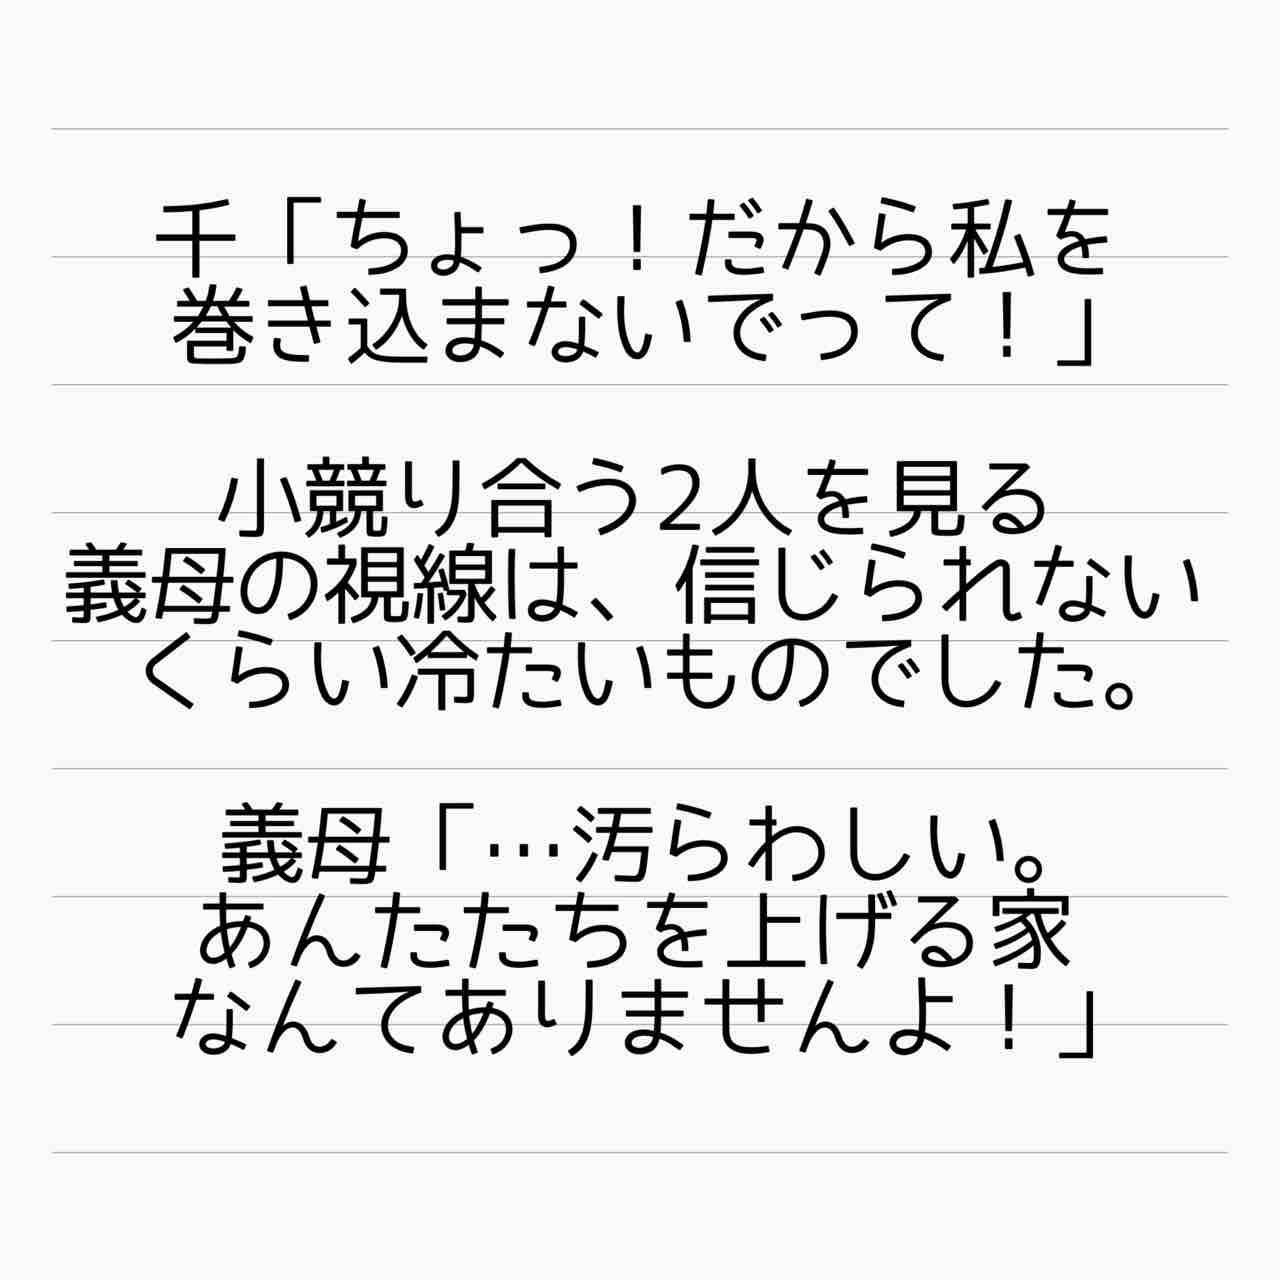 千「ちょっ！だから私を
巻き込まないでって！」
小競り合う2人を見る
義母の視線は、信じられない
くらい冷たいものでした。
義母「…汚らわしい。
あんたたちを上げる家
なんてありませんよ！」